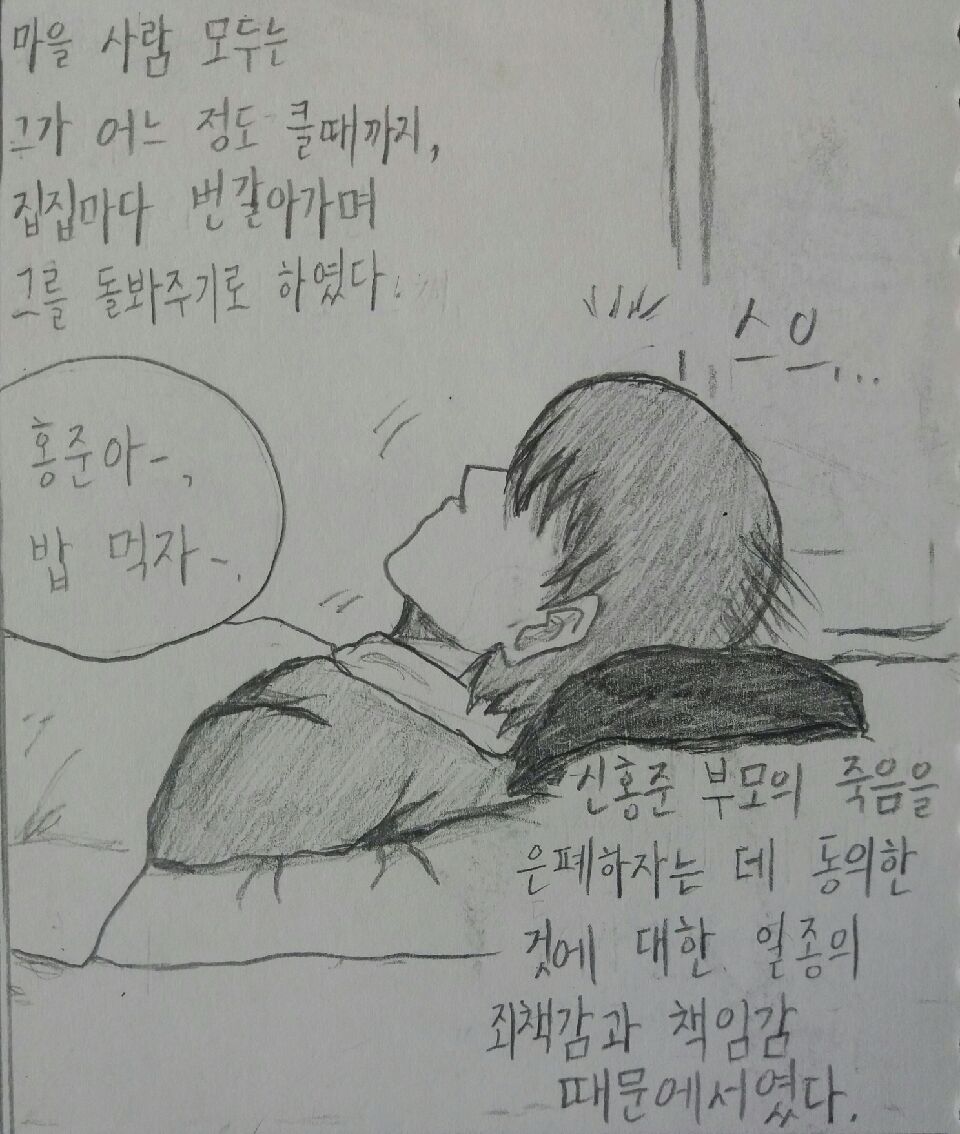 마을 사람 모두는
그가 어느 정도 클때까지,
집집마다 번갈아가며
그를 돌봐주기로 하였다.
스으...
홍준아~,
밥 먹자~.
신홍준 부모의 죽음을
은폐하자는 데 동의한
것에 대한 일종의
죄책감과 책임감
때문에서였다.